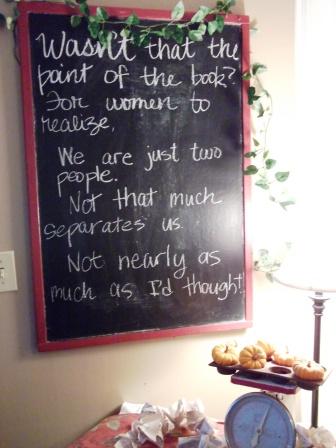 Wasn't that the
point of the book?
For women to
realize,
We are just two
people.
Not that much
separates us.
Not nearly as
much as I'd thought!